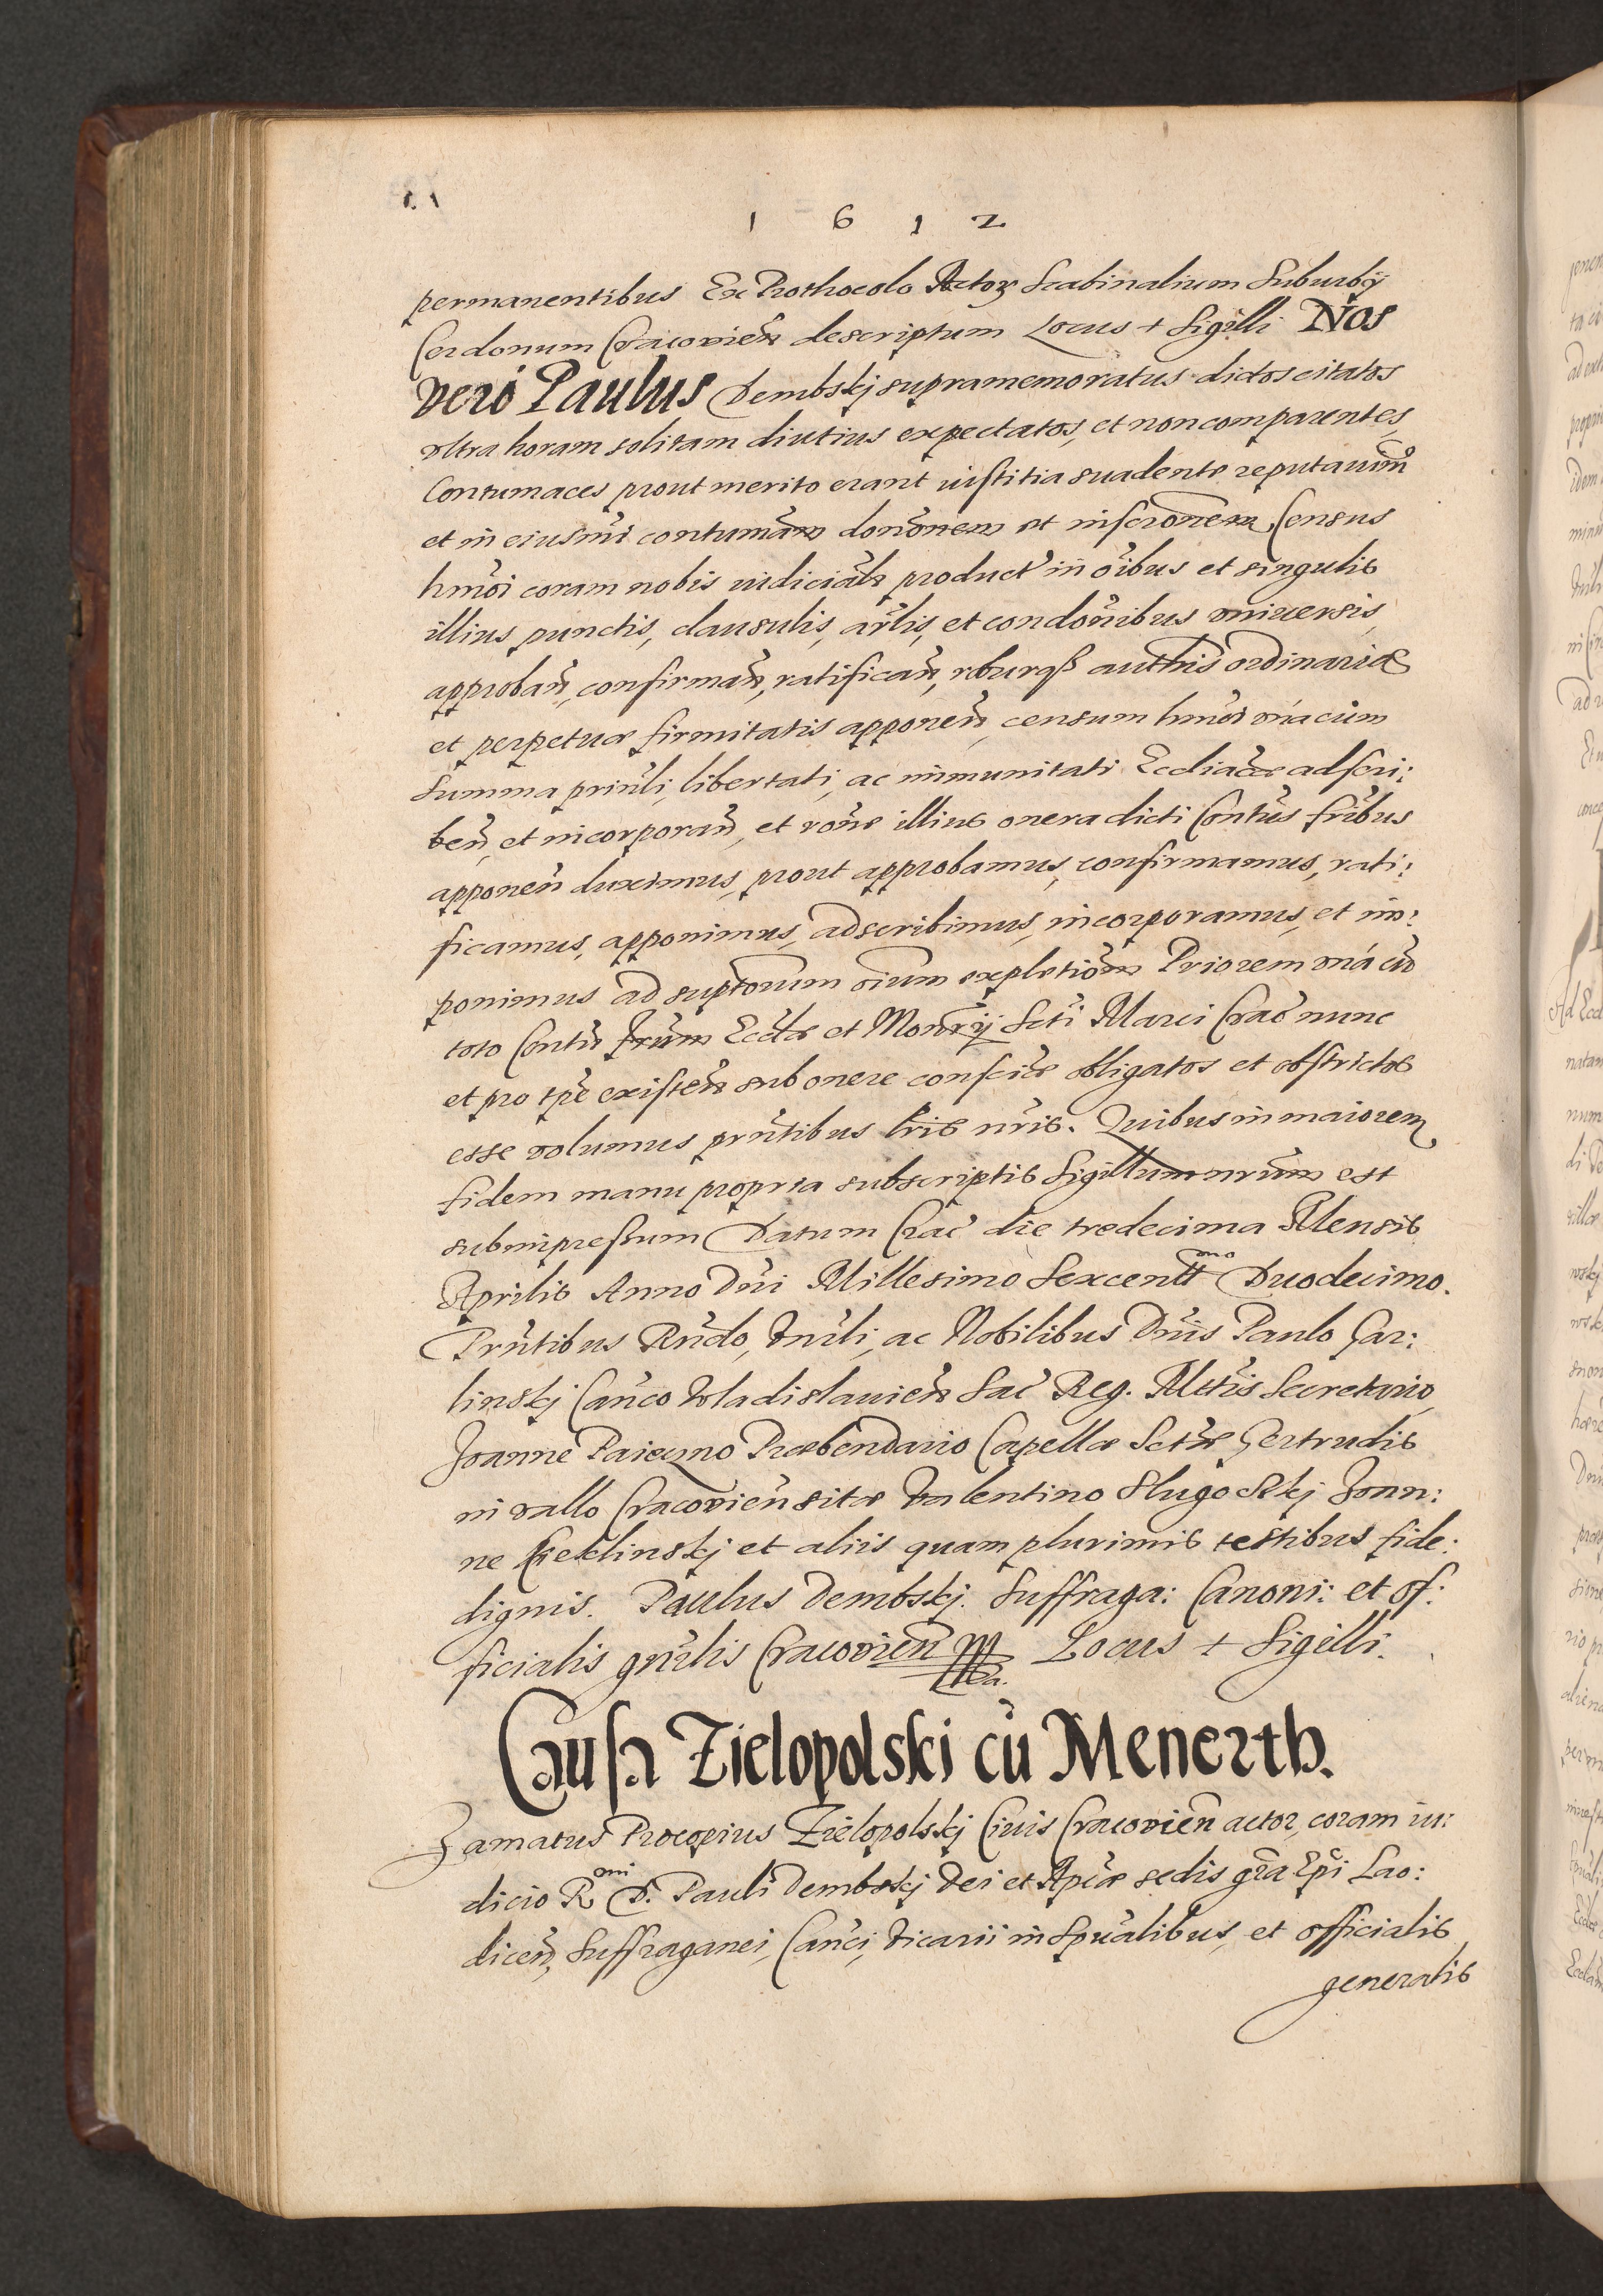 1 6 1 2
permanentibus Ex Prothocolo Actoꝝ Scabinalium Suburbij
Cerdonum Cracovien̄ descriptum Locus + Sigilli Nos
vero Paulus Dembskj supramemoratus dictos citatos
vltra horam solitam diutius expectatos, et non comparentes,
Contumaces prout merito erant iustitia suadente reputauim̄
et in eiusm̄i contumām donōnem et inscrōnem Census
hmōi coram nobis iudiciāle product' in oībus et singulis
illius punctis, clausulis, artlis, et condōnibus vniuersis,
approban̄, confirman̄, ratifican̄, roburqꝫ authtis ordinariæ
et perpetuæ firmitatis apponen̄, censum hmōi vnācum
summa prinli, libertati, ac immunitati Eccliacæ adscri:
ben̄, et incorporan̄, et rōne illius onera dicti Contus frībus
apponen̄ duximus, prout approbamus, confirmamus, rati:
ficamus, apponimus, adscribimus, incorporamus, et im:
ponimus ad suptorum oīum expletiōem Priorem vnā cū
toto Contū frum Eccliæ et Monrij Scti Marci Crac̄ nunc
et pro tpe existen̄ sub onere consciæ obligatos et obstrictos
esse volumus prntibus lris nris. Quibus in maiorem
fidem manu propria subscriptis Sigillum nrum est
subimpressum Datum Crac̄ die tredecima Mensis
Aprilis Anno Dni Millesimo Sexcentmo Duodecimo.
Prntibus Rndo, Vnrli, ac Nobilibus Dnis Paulo Gar:
linskj Canco Wladislauien̄ Sac̄ Reg. Mttis Secretario,
Joanne Paieczno Præbendario Capellæ Sctæ Gertrudis
in vallo Cracovien̄ sitæ Valentino Slugockj Joan:
ne Kieklinskj et aliis quam plurimis testibus fide:
dignis. Paulus Dembskj. Suffraga: Canoni: et of:
ficialis gnrlis Cracovien̄ Locus + Sigilli.
Causa Zielopolski cū Menerth.
Famatus Procopius Zielopolskj Ciuis Cracovien̄ actor, coram iu:
dicio R omi D. Pauli Dembskj Dei et Apcæ sedis gra Epi Lao:
dicen̄, Suffraganei, Canci, Vicarii in Spualibus, et officialis
generalis